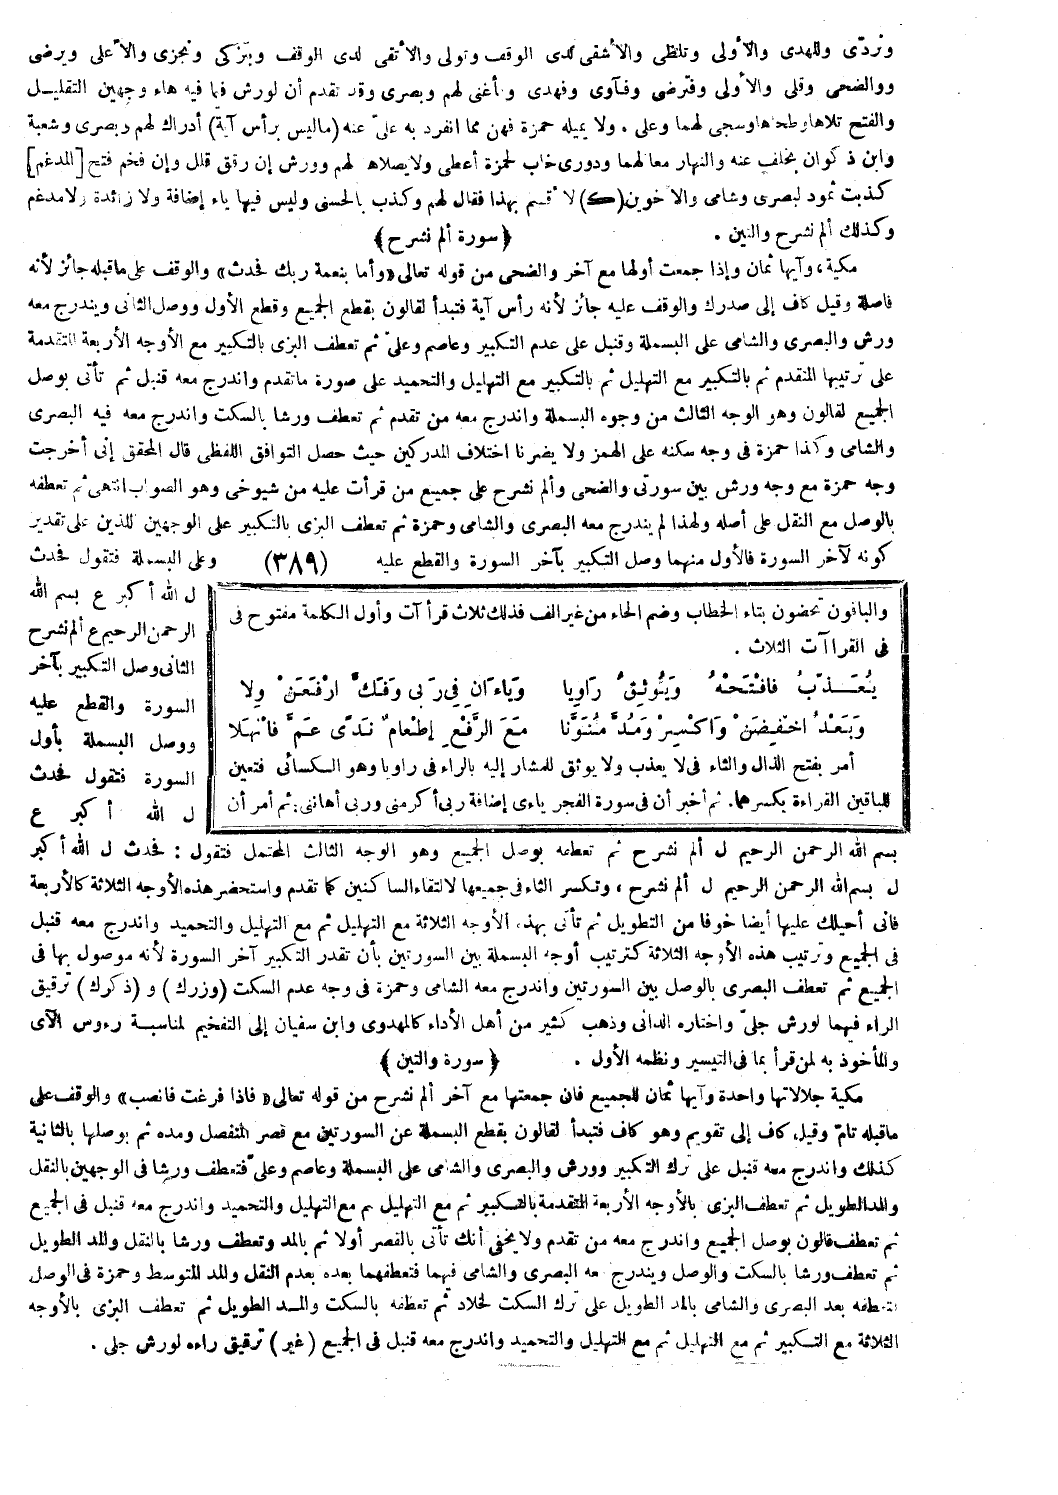 وتردّى وللهدى والأولى وتلظى والأشقى لدى الوقف وتولى والأتقى لدى الوقف ويتزكى وتجزى والأعلى ويرضى
ووالضحى وقلى والأولى وفترضى وفآوى وفهدى وفأغنى لهم وبصرى وقد تقدم أن لورش فيما فيه هاء وجهين التقليل
والفتح تلاها وطحاها وسجى لهما وعلى . ولا يميله حمزة فهن مما انفرد به علىّ عنه (ماليس برأس آية) أدراك لهم وبصرى وشعبة
وابن ذكوان بخلف عنه والنهار معا لهما ودورى خاب لحمزة أعطى ولا يصلاها لهم وورش إن رقق قلل وإن فخم فتح [المدغم]
كذبت ثمود لبصرى وشامى والأخوين (ك) لا أقسم بهذا فقال لهم وكذب بالحسنى وليس فيها ياء إضافة ولا زائدة ولا مدغم
وكذلك ألم نشرح والتين . ﴿ سورة ألم نشرح ﴾
مكية، وآيها ثمان وإذا جمعت أولها مع آخر والضحى من قوله تعالى «وأما بنعمة ربك فحدث» والوقف على ماقبله جائز لأنه
فاصلة وقيل كاف إلى صدرك والوقف عليه جائز لأنه رأس آية فتبدأ لقالون بقطع الجميع وقطع الأول ووصل الثانى ويندرج معه
ورش والبصرى والشامى على البسملة وقنبل على عدم التكبير وعاصم وعلىّ ثم تعطف البزى بالتكبير مع الأوجه الأربعة المتقدمة
على ترتيبها المتقدم ثم بالتكبير مع التهليل ثم بالتكبير مع التهليل والتحميد على صورة ماتقدم واندرج معه قنبل ثم تأتى بوصل
الجميع لقالون وهو الوجه الثالث من وجوه البسملة واندرج معه من تقدم ثم تعطف ورشا بالسكت واندرج معه فيه البصرى
والشامى وكذا حمزة فى وجه سكته على الهمز ولا يضرنا اختلاف المدركين حيث حصل التوافق اللفظى قال المحقق إنى أخرجت
وجه حمزة مع وجه ورش بين سورتى والضحى وألم نشرح على جميع من قرأت عليه من شيوخى وهو الصواب انتهى ثم تعطفه
بالوصل مع النقل على أصله ولهذا لم يندرج معه البصرى والشامى وحمزة ثم تعطف البزى بالتكبير على الوجهين للذين على تقدير
كونه لآخر السورة فالأول منهما وصل التكبير بآخر السورة والقطع عليه (٣٨٩) وعلى البسملة فتقول فحدث
ل الله أكبر ع بسم الله
الرحمن الرحيم ع ألم نشرح
الثانى وصل التكبير بآخر
السورة والقطع عليه
ووصل البسملة بأول
السورة فتقول فحدث
ل الله أكبر ع
والباقون تحضون بتاء الخطاب وضم الحاء من غير الف فذلك ثلاث قرا آت وأول الكلمة مفتوح فى
فى القراآت الثلاث .
يُعَذِّبُ فَافْتَحْهُ وَيُوثِقُ رَاوِيا وَيَاءَانِ فِى رَبِى وَفَكَّ ارْفَعَنْ وِلا
وَبَعْدُ اخْفِضَنْ وَاكْسِرْ وَمُدَّ مُنَوِّنًا مَعَ الرَّفْعِ إِطْعَامٌ نَدًى عَمَّ فَانْهَلا
أمر بفتح الذال والثاء فى لا يعذب ولا يوثق للمشار إليه بالراء فى راويا وهو الكسائى فتعين
للباقين القراءة بكسرهما. ثم أخبر أن فى سورة الفجر ياءى إضافة ربى أكرمنى وربى أهاننى: ثم أمر أن
بسم الله الرحمن الرحيم ل ألم نشرح ثم تعطفه بوصل الجميع وهو الوجه الثالث المحتمل فتقول : فحدث ل الله أكبر
ل بسم الله الرحمن الرحيم ل ألم نشرح، وتكسر الثاء فى جميعها لالتقاء الساكنين كما تقدم واستحضر هذه الأوجه الثلاثة كالأربعة
فانى أحيلك عليها أيضا خوفا من التطويل ثم تأتى بهذه الأوجه الثلاثة مع التهليل ثم مع التهليل والتحميد واندرج معه قنبل
فى الجميع وترتيب هذه الأوجه الثلاثة كترتيب أوجه البسملة بين السورتين بأن تقدر التكبير آخر السورة لأنه موصول بها فى
الجميع ثم تعطف البصرى بالوصل بين السورتين واندرج معه الشامى وحمزة فى وجه عدم السكت (وزرك) و (ذكرك) ترقيق
الراء فيهما لورش جلىّ واختاره الدانى وذهب كثير من أهل الأداء كالمهدوى وابن سفيان إلى التفخيم لمناسبة رءوس الآى
والمأخوذ به لمن قرأ بما فى التيسير ونظمه الأول . ﴿ سورة والتين ﴾
مكية جلالاتها واحدة وآيها ثمان للجميع فان جمعتها مع آخر ألم نشرح من قوله تعالى «فاذا فرغت فانصب» والوقف على
ماقبله تامّ وقيل كاف إلى تقويم وهو كاف فتبدأ لقالون بقطع البسملة عن السورتين مع قصر المنفصل ومده ثم بوصلها بالثانية
كذلك واندرج معه قنبل على ترك التكبير وورش والبصرى والشامى على البسملة وعاصم وعلىّ فتعطف ورشا فى الوجهين بالنقل
والمد الطويل ثم تعطف البزى بالأوجه الأربعة المتقدمة بالتكبير ثم مع التهليل ثم مع التهليل والتحميد واندرج معه قنبل فى الجميع
ثم تعطف قالون بوصل الجميع واندرج معه من تقدم ولا يخفى أنك تأتى بالقصر أولا ثم بالمد وتعطف ورشا بالنقل والمد الطويل
ثم تعطف ورشا بالسكت والوصل ويندرج معه البصرى والشامى فيهما فتعطفهما بعده بعدم النقل والمد المتوسط وحمزة فى الوصل
فتعطفه بعد البصرى والشامى بالمد الطويل على ترك السكت لخلاد ثم تعطفه بالسكت والمد الطويل ثم تعطف البزى بالأوجه
الثلاثة مع التكبير ثم مع التهليل ثم مع التهليل والتحميد واندرج معه قنبل فى الجميع (غير) ترقيق راءه لورش جلى .